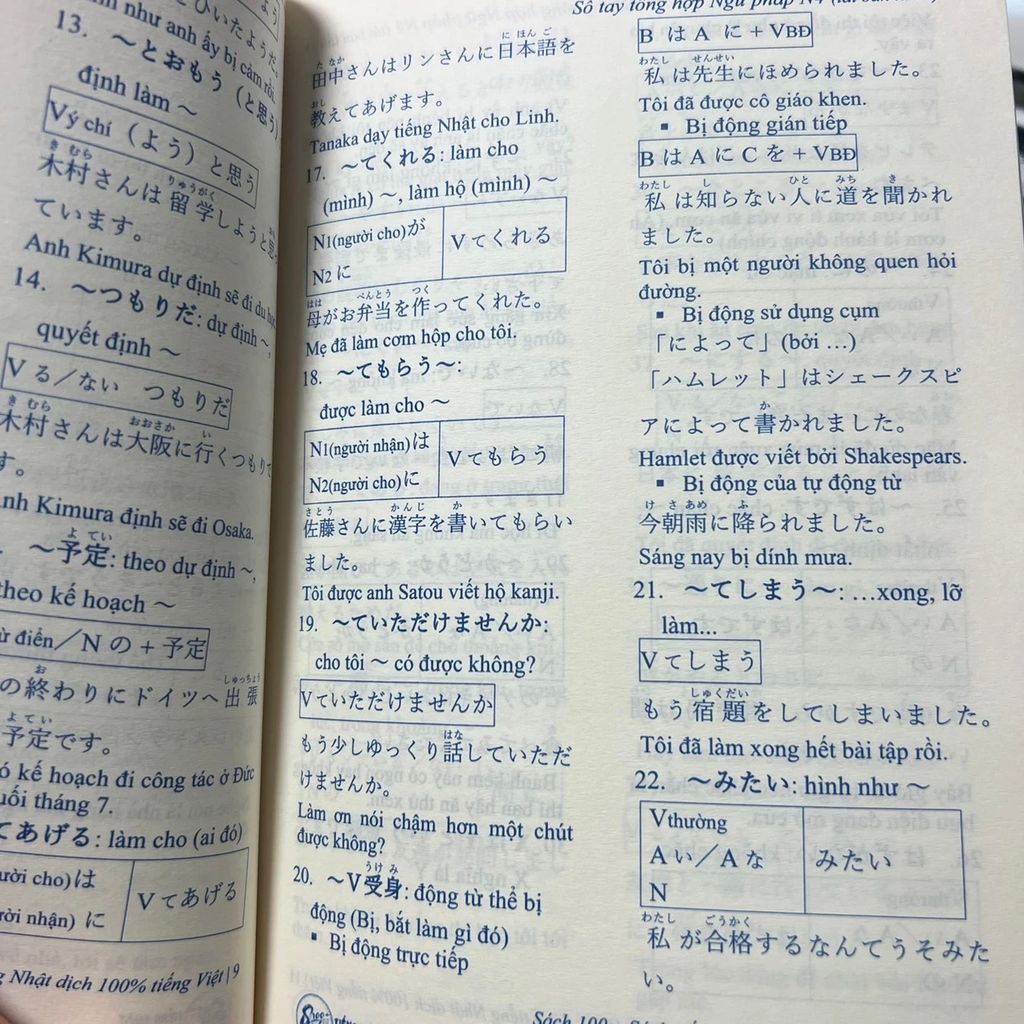 như anh ấy bị cảm rồi.
13. ~とおもう (と思う)
định làm ~
Vý chí (よう) と思う
木村さんは留学しようと思っ
ています。
Anh Kimura dự định sẽ đi du học.
14. ~つもりだ: dự định ~,
quyết định ~
Vる/ない つもりだ
木村さんは大阪に行くつもりで
す。
Anh Kimura định sẽ đi Osaka.
~予定: theo dự định ~,
theo kế hoạch ~
từ điển/Nの + 予定
の終わりにドイツへ出張
予定です。
kế hoạch đi công tác ở Đức
cuối tháng 7.
てあげる: làm cho (ai đó)
người cho)は
người nhận) に
Vてあげる
Nhật dịch 100% tiếng Việt|9
Sổ tay tổng hợp Ngữ pháp N4
田中さんはリンさんに日本語を
教えてあげます。
Tanaka dạy tiếng Nhật cho Linh.
17. ~てくれる: làm cho
(mình) ~, làm hộ (mình) ~
N1(người cho)が
N2 に
Vてくれる
母がお弁当を作ってくれた。
Mẹ đã làm cơm hộp cho tôi.
18. ~てもらう~:
được làm cho ~
N1(người nhận)は
N2(người cho)に
Vてもらう
佐藤さんに漢字を書いてもらい
ました。
Tôi được anh Satou viết hộ kanji.
19. ~ていただけませんか:
cho tôi ~ có được không?
Vていただけませんか
もう少しゆっくり話していただ
けませんか。
Làm ơn nói chậm hơn một chút
được không?
20. ~V受身: động từ thể bị
động (Bị, bắt làm gì đó)
▪ Bị động trực tiếp
B は A に + VBĐ
私は先生にほめられました。
Tôi đã được cô giáo khen.
▪ Bị động gián tiếp
B は A に C を + VBĐ
私は知らない人に道を聞かれ
ました。
Tôi bị một người không quen hỏi
đường.
▪ Bị động sử dụng cụm
「によって」(bởi …)
「ハムレット」はシェークスピ
アによって書かれました。
Hamlet được viết bởi Shakespears.
▪ Bị động của tự động từ
今朝雨に降られました。
Sáng nay bị dính mưa.
21. ~てしまう~: …xong, lỡ
làm...
Vてしまう
もう宿題をしてしまいました。
Tôi đã làm xong hết bài tập rồi.
22. ~みたい: hình như ~
Vthường
Aい/Aな
N
みたい
私が合格するなんてうそみた
い。